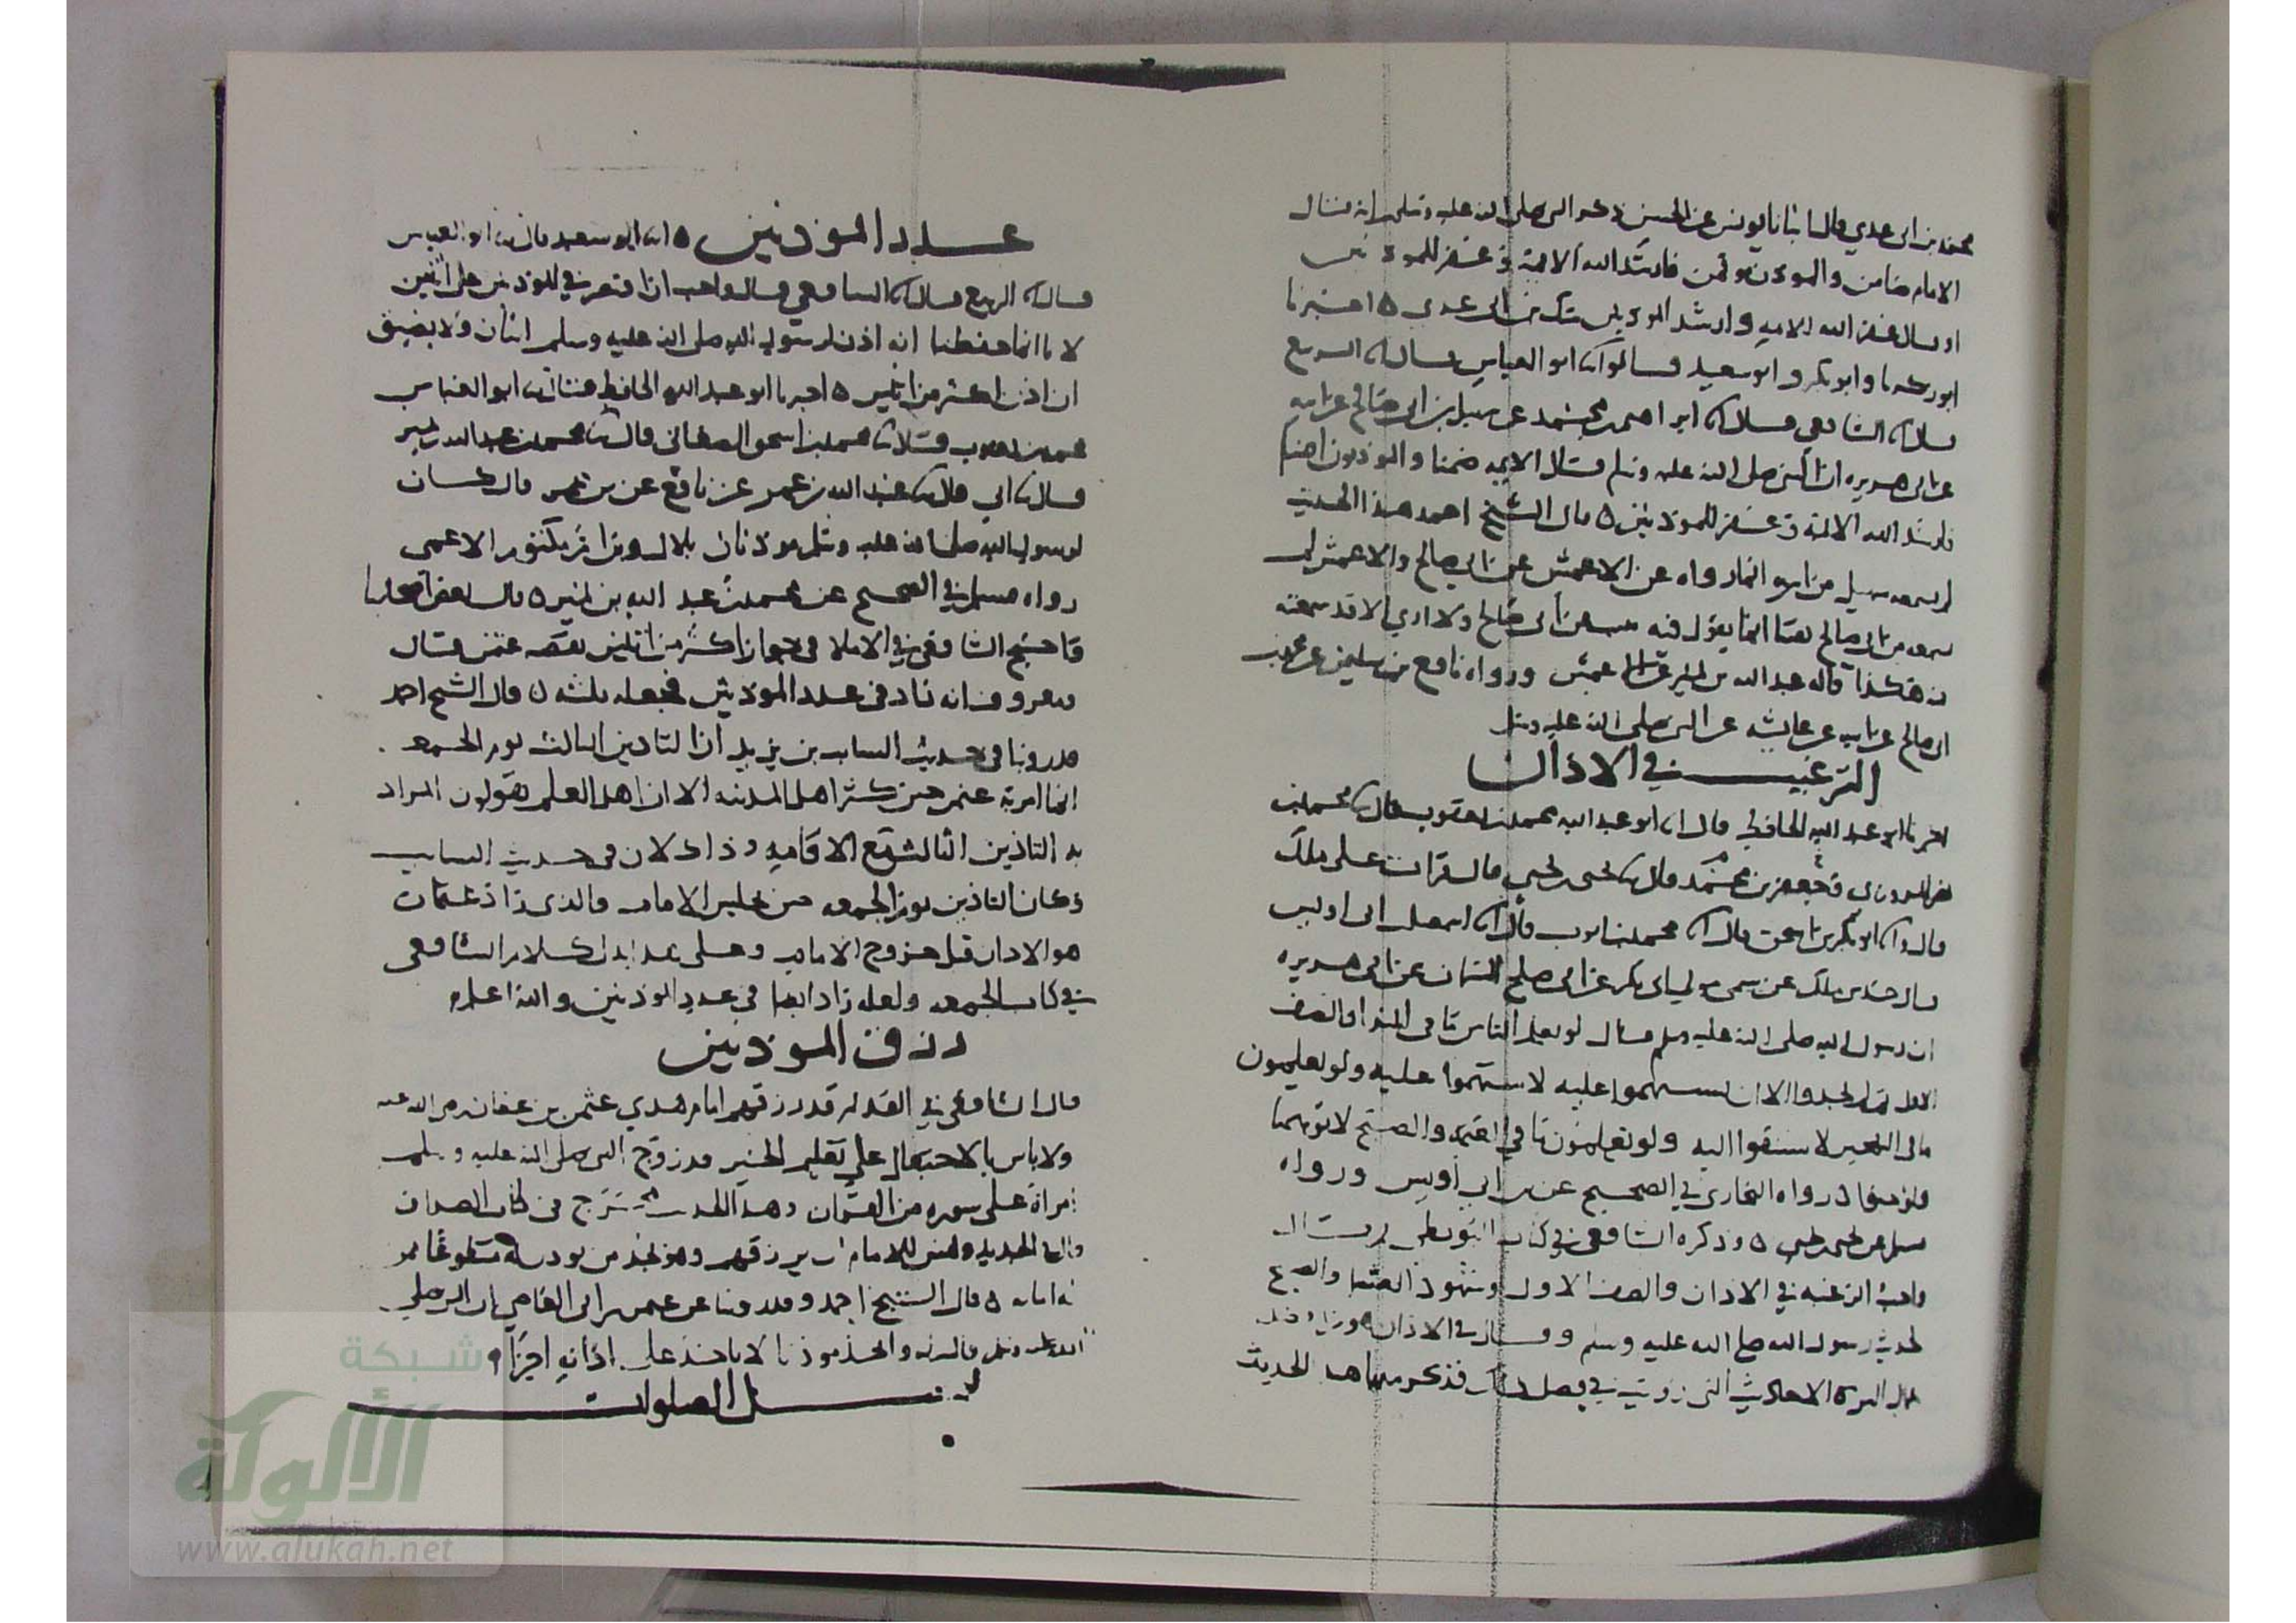 محمد بن ابي عدي قال انبانا يونس عن الحسن ذكر النبي صلى الله عليه وسلم انه قال
الامام ضامن والموذن موتمن فارشد الله الايمة وغفر للموذنين
او قال غفر الله للايمة وارشد الموذنين شك بن ابي عدي ٥ اخبرنا
ابو زكريا وابو بكر وابو سعيد قالوا ابو العباس قال الربيع
قال الشافعي قال ابراهيم بن محمد عن سهيل بن ابي صالح عن ابيه
عن ابي هريره ان النبي صلى الله عليه وسلم قال الايمه ضمنا والموذنون امنا
فارشد الله الايمة وغفر للموذنين ٥ قال الشيخ احمد هذا الحديث
لم يسمعه سهيل من ابيه انما رواه عن الاعمش عن ابي صالح والاعمش لم
يسمعه من ابي صالح يقينا انما يقول فيه عن ابي صالح ولا اري الا قد سمعته
منه هكذا قاله عبد الله بن نمير عن الاعمش ورواه نافع بن سليمن عن محمد بن
ابي صالح عن ابيه عن عايشه عن النبي صلى الله عليه وسلم
الترغيب في الاذان
اخبرنا ابو عبد الله الحافظ قال ابو عبد الله محمد بن يعقوب قال محمد بن
نصر وجعفر بن محمد قال يحيى بن يحيى قال قرات على ملك
قال وا ابو بكر بن اسحق قال محمد بن ايوب قال اسمعيل بن ابي اويس
قال حدثني ملك عن سمي مولي ابي بكر عن ابي صلح السمان عن ابي هريره
ان رسول الله صلى الله عليه وسلم قال لو يعلم الناس ما في الندا والصف
الاول ثم لم يجدوا الا ان يستهموا عليه لاستهموا عليه ولو يعلمون
ما في التهجير لاستبقوا اليه ولو يعلمون ما في العتمة والصبح لاتوهما
ولو حبوا ٥ رواه البخاري في الصحيح عن بن ابي اويس ورواه
مسلم عن يحيى بن يحيى ٥ وذكره الشافعي في كتاب البويطي
واحب الرغبه في الاذان والصف الاول وشهود العتمه والصبح
لحديث رسول الله صلى الله عليه وسلم وقال في الاذان
الاحاديث التي رويت في فضل فذكر منها هذا الحديث
عدد الموذنين ٥ ابو سعيد قال ابو العباس
قال الربيع قال الشافعي قال واحب ان اقتصر في الموذنين على اثنين
لانا انما حفظنا انه اذن لرسول الله صلى الله عليه وسلم اثنان ولا يضيق
ان اذن اكثر من اثنين ٥ اخبرنا ابو عبد الله الحافظ قال ابو العباس
محمد بن يعقوب قال محمد بن اسحق الصغاني قال محمد بن عبد الله بن نمير
قال ابي قال عبيد الله بن عمر عن نافع عن بن عمر قال كان
لرسول الله صلى الله عليه وسلم موذنان بلال وبن ام مكتوم الاعمى
رواه مسلم في الصحيح عن محمد بن عبد الله بن نمير ٥ قال بعض اصحابنا
واحتج الشافعي في الاملا في جواز اكثر من اثنين بقصه عثمن فقال
ومعروف انه زاد في عدد الموذنين فجعله ثلثه ٥ قال الشيخ احمد
قد روينا في حديث السايب بن يزيد ان التاذين الثالث يوم الجمعه
انما امر به عثمن حين كثر اهل المدينه الا ان اهل العلم يقولون المراد
به التاذين الثالث مع الاقامه وذاك لان في حديث السايب
وكان التاذين يوم الجمعه حين يجلس الامام والذي زاد عثمان
هو الاذان قبل خروج الامام وعلى هذا يدل كلام الشافعي
في كتاب الجمعه ولعله زاد ايضا في عدد الموذنين والله اعلم
رزق الموذنين
قال الشافعي في القديم قد رزقهم امام هدي عثمن بن عفان رضي الله عنه
ولا باس بالاحتعال على تعليم الخير قد زوج النبي صلى الله عليه وسلم
امراة على سوره من القران وهذا الحديث مخرج في كتاب الصداق
قال في الجديد وليس للامام ان يرزقهم وهو يجد من يوذن له متطوعا ممن
له امانه ٥ قال الشيخ احمد وقد روينا عن عثمن بن ابي العاص ان النبي صلى
الله عليه وسلم قال له واتخذ موذنا لا ياخذ على اذانه اجرا ٥
فضل الصلوات
شبكة
الألوكة
www.alukah.net